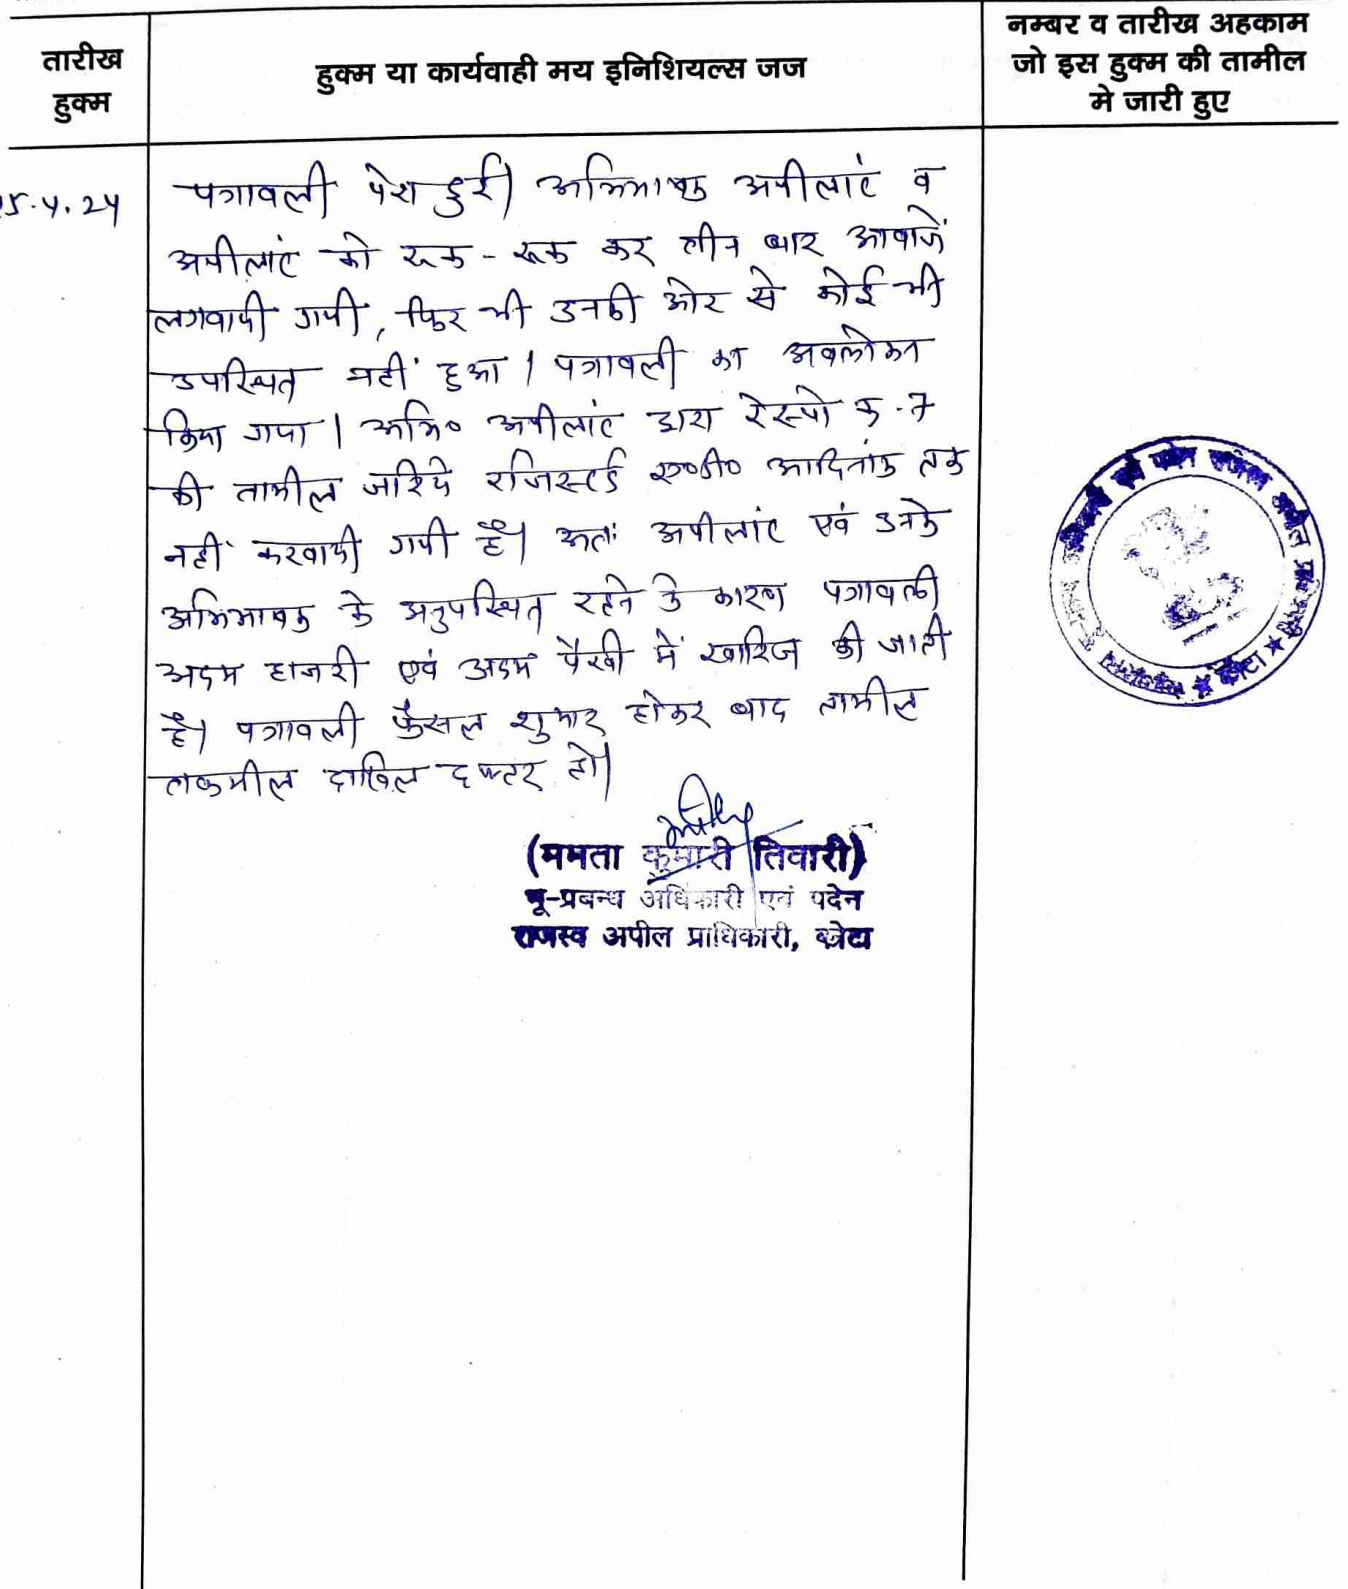 तारीख
हुक्म
हुक्म या कार्यवाही मय इनिशियल्स जज
नम्बर व तारीख अहकाम
जो इस हुक्म की तामील
मे जारी हुए
5.4.24
पत्रावली पेश हुई। अभिभाषक अपीलांट व
अपीलांट को रूक-रूक कर तीन बार आवाजें
लगवायी गयी, फिर भी उनकी ओर से कोई भी
उपस्थित नहीं हुआ। पत्रावली का अवलोकन
किया गया। अभि० अपीलांट द्वारा रेस्पो क्र.7
की तामील जरिये रजिस्टर्ड ए०डी० आदिनांक तक
नहीं करवायी गयी है। अतः अपीलांट एवं उनके
अभिभाषक के अनुपस्थित रहने के कारण पत्रावली
अदम हाजरी एवं अदम पैरवी में खारिज की जाती
है। पत्रावली फैसल शुमार होकर बाद तामील
तकमील दाखिल दफ्तर हो।
(ममता कुमारी तिवारी)
भू-प्रबन्ध अधिकारी एवं पदेन
राजस्व अपील प्राधिकारी, कोटा